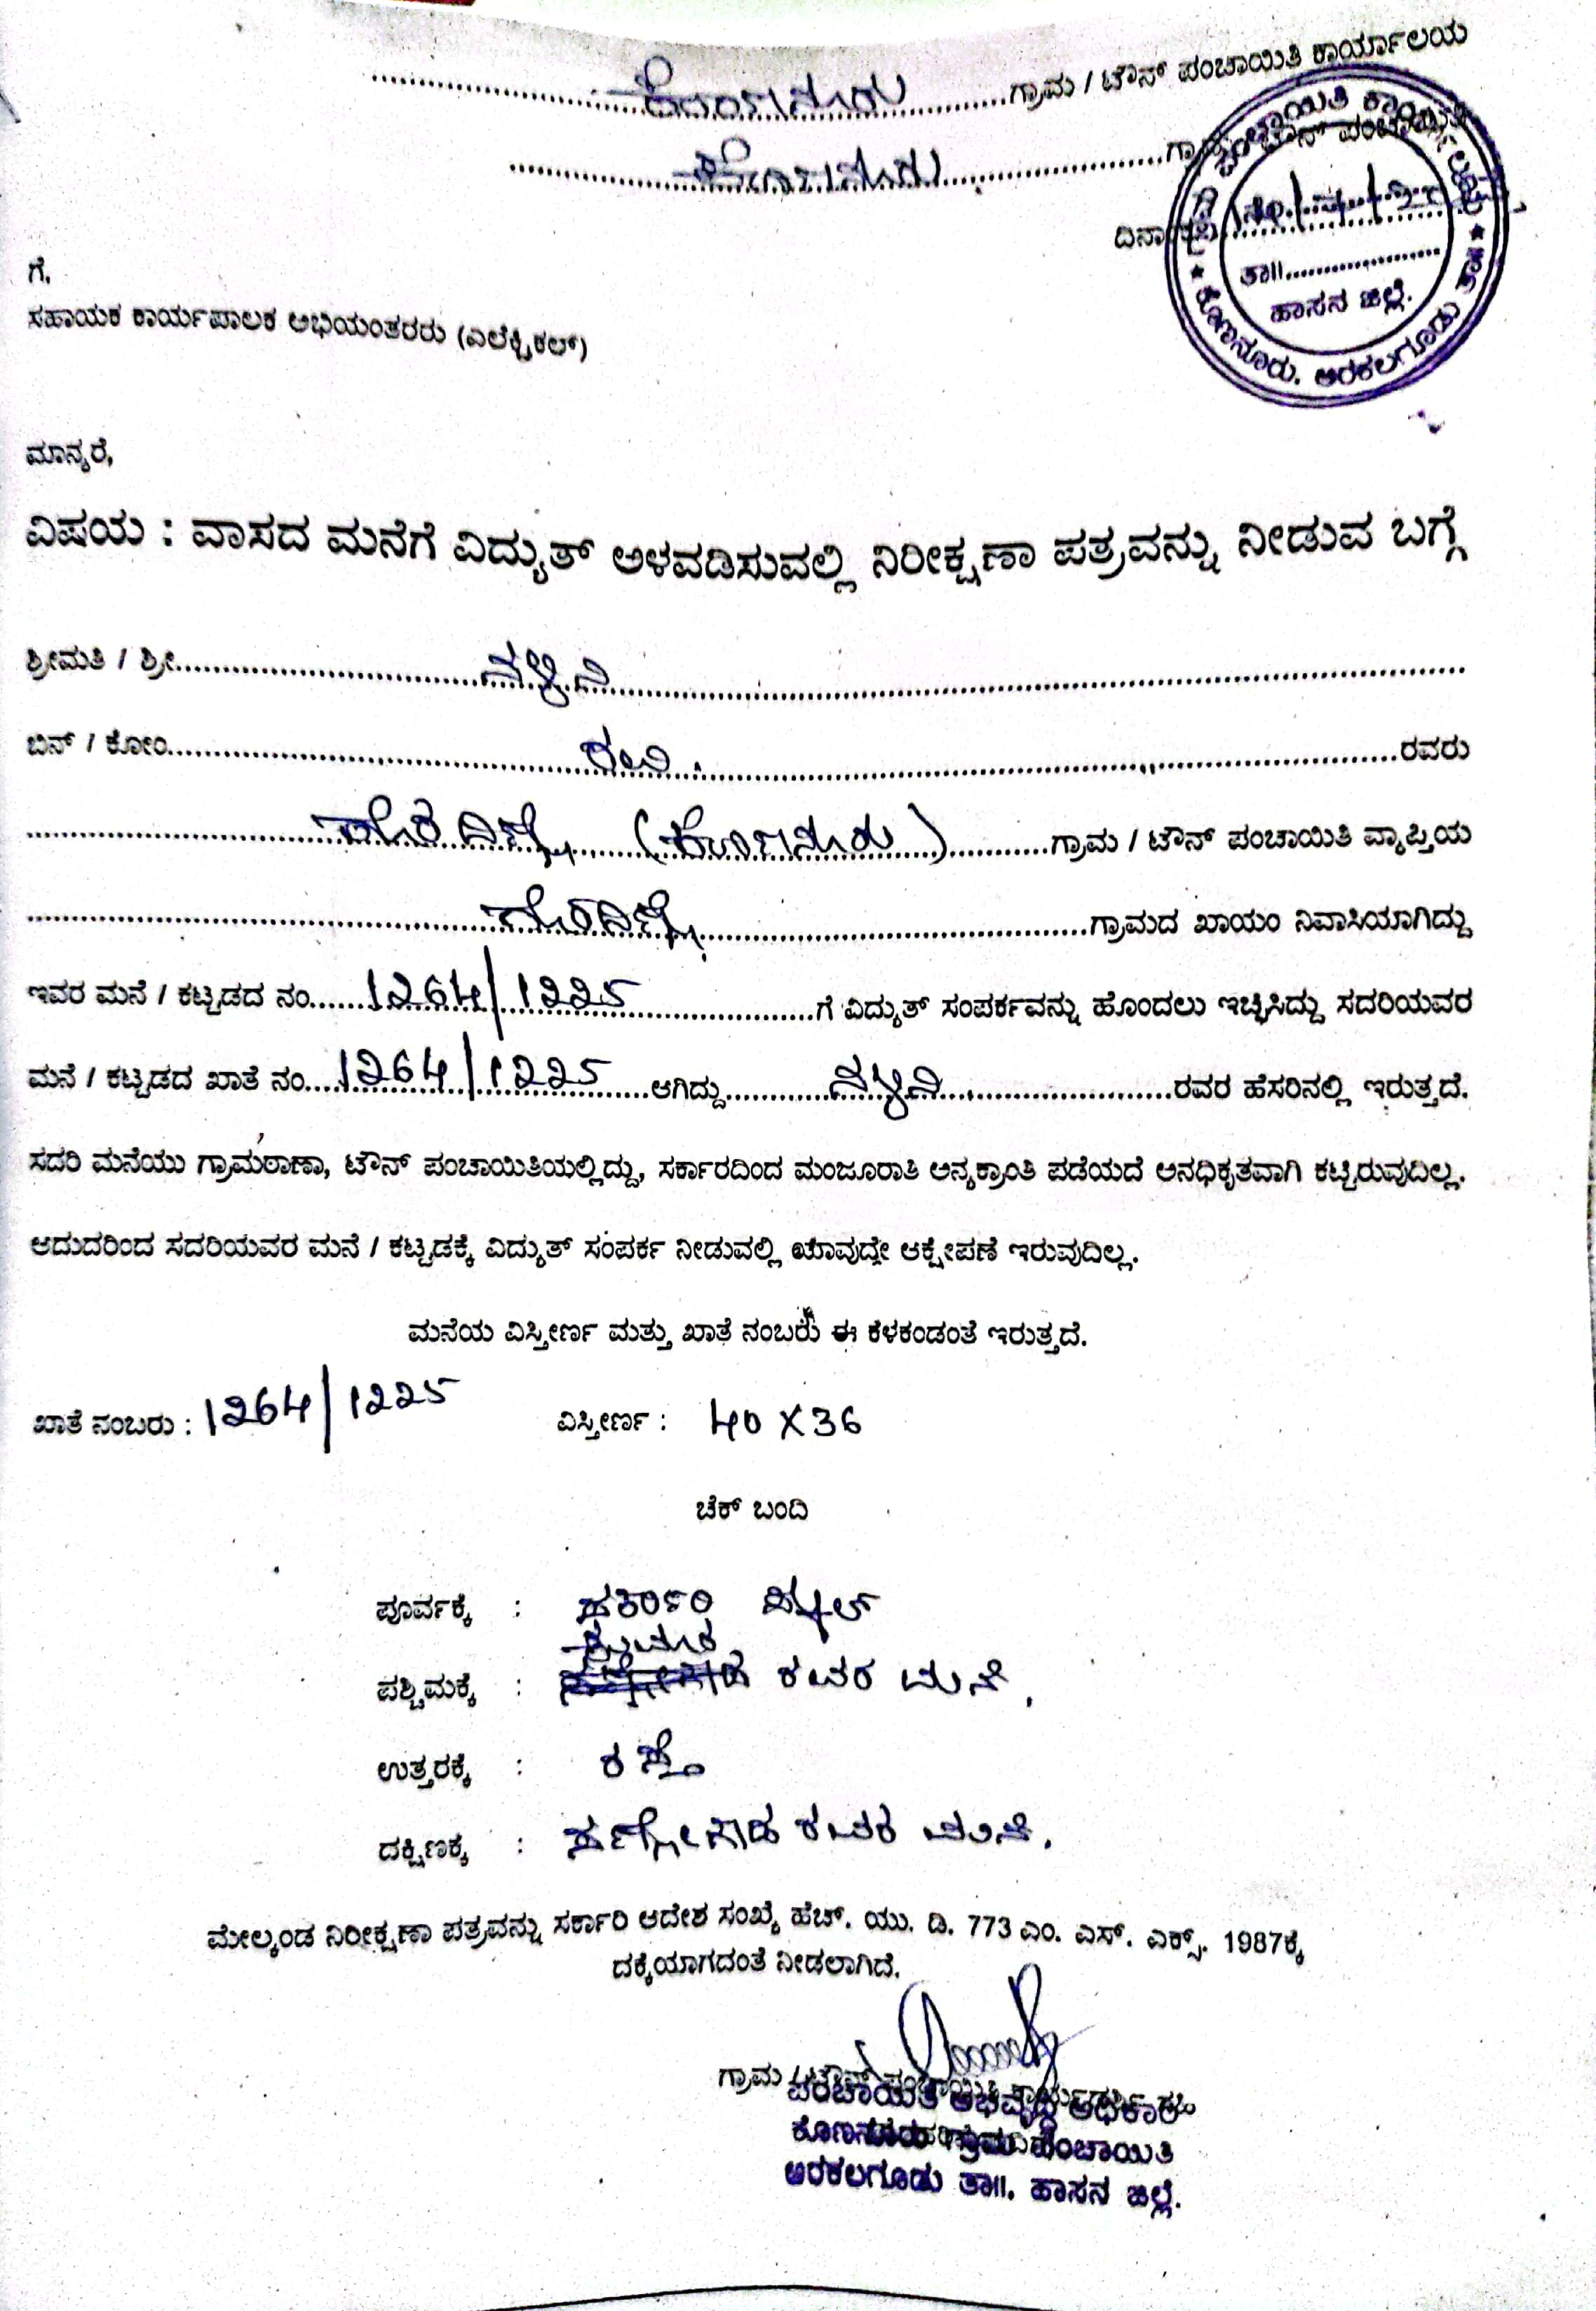 ಕೊಣನೂರು ಗ್ರಾಮ / ಟೌನ್ ಪಂಚಾಯಿತಿ ಕಾರ್ಯಾಲಯ
ಕೊಣನೂರು ಗ್ರಾಮ / ಟೌನ್ ಪಂಚಾಯಿತಿ
ದಿನಾಂಕ
ತಾ||
ಹಾಸನ ಜಿಲ್ಲೆ.
ಕೊಣನೂರು. ಅರಕಲಗೂಡು
ಗೆ,
ಸಹಾಯಕ ಕಾರ್ಯಪಾಲಕ ಅಭಿಯಂತರರು (ಎಲೆಕ್ಟ್ರಿಕಲ್)
ಮಾನ್ಯರೆ,
ವಿಷಯ : ವಾಸದ ಮನೆಗೆ ವಿದ್ಯುತ್ ಅಳವಡಿಸುವಲ್ಲಿ ನಿರೀಕ್ಷಣಾ ಪತ್ರವನ್ನು ನೀಡುವ ಬಗ್ಗೆ
ಶ್ರೀಮತಿ / ಶ್ರೀ ನಳಿನಿ
ಬಿನ್ / ಕೋಂ ರವಿ. ರವರು
(ಕೊಣನೂರು) ಗ್ರಾಮ / ಟೌನ್ ಪಂಚಾಯಿತಿ ವ್ಯಾಪ್ತಿಯ
ಗ್ರಾಮದ ಖಾಯಂ ನಿವಾಸಿಯಾಗಿದ್ದು
ಇವರ ಮನೆ / ಕಟ್ಟಡದ ನಂ 1264/1225 ಗೆ ವಿದ್ಯುತ್ ಸಂಪರ್ಕವನ್ನು ಹೊಂದಲು ಇಚ್ಛಿಸಿದ್ದು ಸದರಿಯವರ
ಮನೆ / ಕಟ್ಟಡದ ಖಾತೆ ನಂ 1264/1225 ಆಗಿದ್ದು ನಳಿನಿ ರವರ ಹೆಸರಿನಲ್ಲಿ ಇರುತ್ತದೆ.
ಸದರಿ ಮನೆಯು ಗ್ರಾಮಠಾಣಾ, ಟೌನ್ ಪಂಚಾಯಿತಿಯಲ್ಲಿದ್ದು, ಸರ್ಕಾರದಿಂದ ಮಂಜೂರಾತಿ ಅನ್ಯಕ್ರಾಂತಿ ಪಡೆಯದೆ ಅನಧಿಕೃತವಾಗಿ ಕಟ್ಟಿರುವುದಿಲ್ಲ.
ಆದುದರಿಂದ ಸದರಿಯವರ ಮನೆ / ಕಟ್ಟಡಕ್ಕೆ ವಿದ್ಯುತ್ ಸಂಪರ್ಕ ನೀಡುವಲ್ಲಿ ಯಾವುದೇ ಆಕ್ಷೇಪಣೆ ಇರುವುದಿಲ್ಲ.
ಮನೆಯ ವಿಸ್ತೀರ್ಣ ಮತ್ತು ಖಾತೆ ನಂಬರು ಈ ಕೆಳಕಂಡಂತೆ ಇರುತ್ತದೆ.
ಖಾತೆ ನಂಬರು : 1264/1225 ವಿಸ್ತೀರ್ಣ : 40 X 36
ಚೆಕ್ ಬಂದಿ
ಪೂರ್ವಕ್ಕೆ :
ಕುಮಾರ
ಪಶ್ಚಿಮಕ್ಕೆ : ರವರ ಮನೆ.
ಉತ್ತರಕ್ಕೆ : ರಸ್ತೆ
ದಕ್ಷಿಣಕ್ಕೆ : ರವರ ಮನೆ.
ಮೇಲ್ಕಂಡ ನಿರೀಕ್ಷಣಾ ಪತ್ರವನ್ನು ಸರ್ಕಾರಿ ಆದೇಶ ಸಂಖ್ಯೆ ಹೆಚ್. ಯು. ಡಿ. 773 ಎಂ. ಎಸ್. ಎಕ್ಸ್. 1987ಕ್ಕೆ
ದಕ್ಕೆಯಾಗದಂತೆ ನೀಡಲಾಗಿದೆ.
ಗ್ರಾಮ / ಟೌನ್ ಪಂಚಾಯಿತಿ
ಪಂಚಾಯಿತಿ ಅಭಿವೃದ್ಧಿ ಅಧಿಕಾರಿ
ಕೊಣನೂರು ಗ್ರಾಮ ಪಂಚಾಯಿತಿ
ಅರಕಲಗೂಡು ತಾ||. ಹಾಸನ ಜಿಲ್ಲೆ.